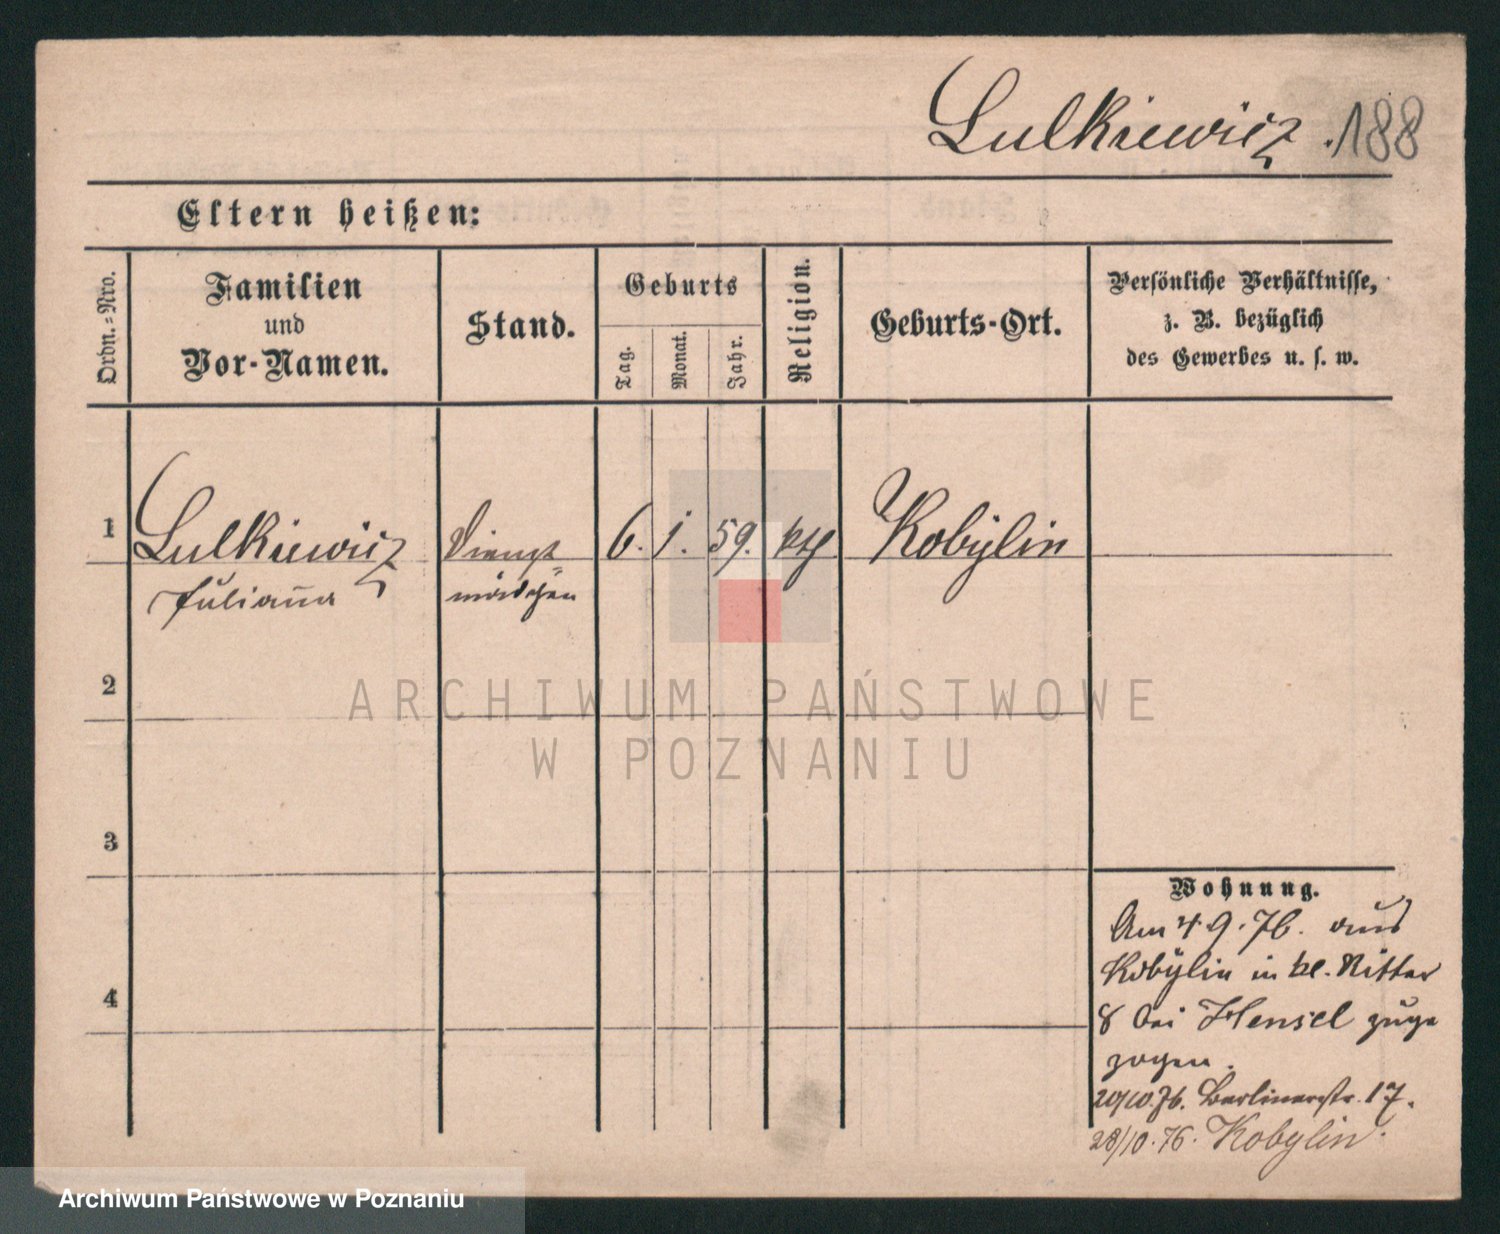 Lulkiewicz. 188
Eltern heißen:
Ordn.-Nro.
Familien
und
Vor-Namen.
Stand.
Geburts
Tag.
Monat.
Jahr.
Religion.
Geburts-Ort.
Persönliche Verhältnisse,
z. B. bezüglich
des Gewerbes u. s. w.
1 Lulkiewicz Dienst= 6. 1. 59. kth Kobylin
Juliana mädchen
2
3
4
Wohnung.
Am 4.9.76. aus
Kobylin in kl. Ritter
8 bei Hensel zuge
zogen.
20/10.76. Berlinerstr. 17.
28/10.76. Kobylin.
ARCHIWUM PAŃSTWOWE
W POZNANIU
Archiwum Państwowe w Poznaniu